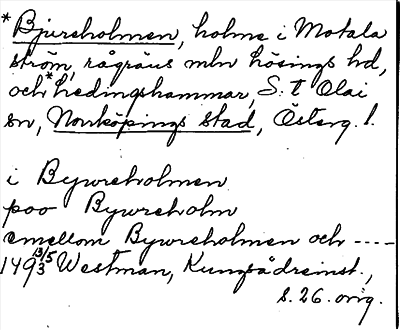 *Bjursholmen, holme i Motala
ström, rågräns mln hösings hd,
och *hedingshammar, S:t Olai
sn, Norrköpings stad, Österg. l.
i Bywrsholmen
poo Bywrsholm
emellom Bywrsholmen och ----
1493 13/5 Westman, Kungsådreinst.,
s. 26. orig.